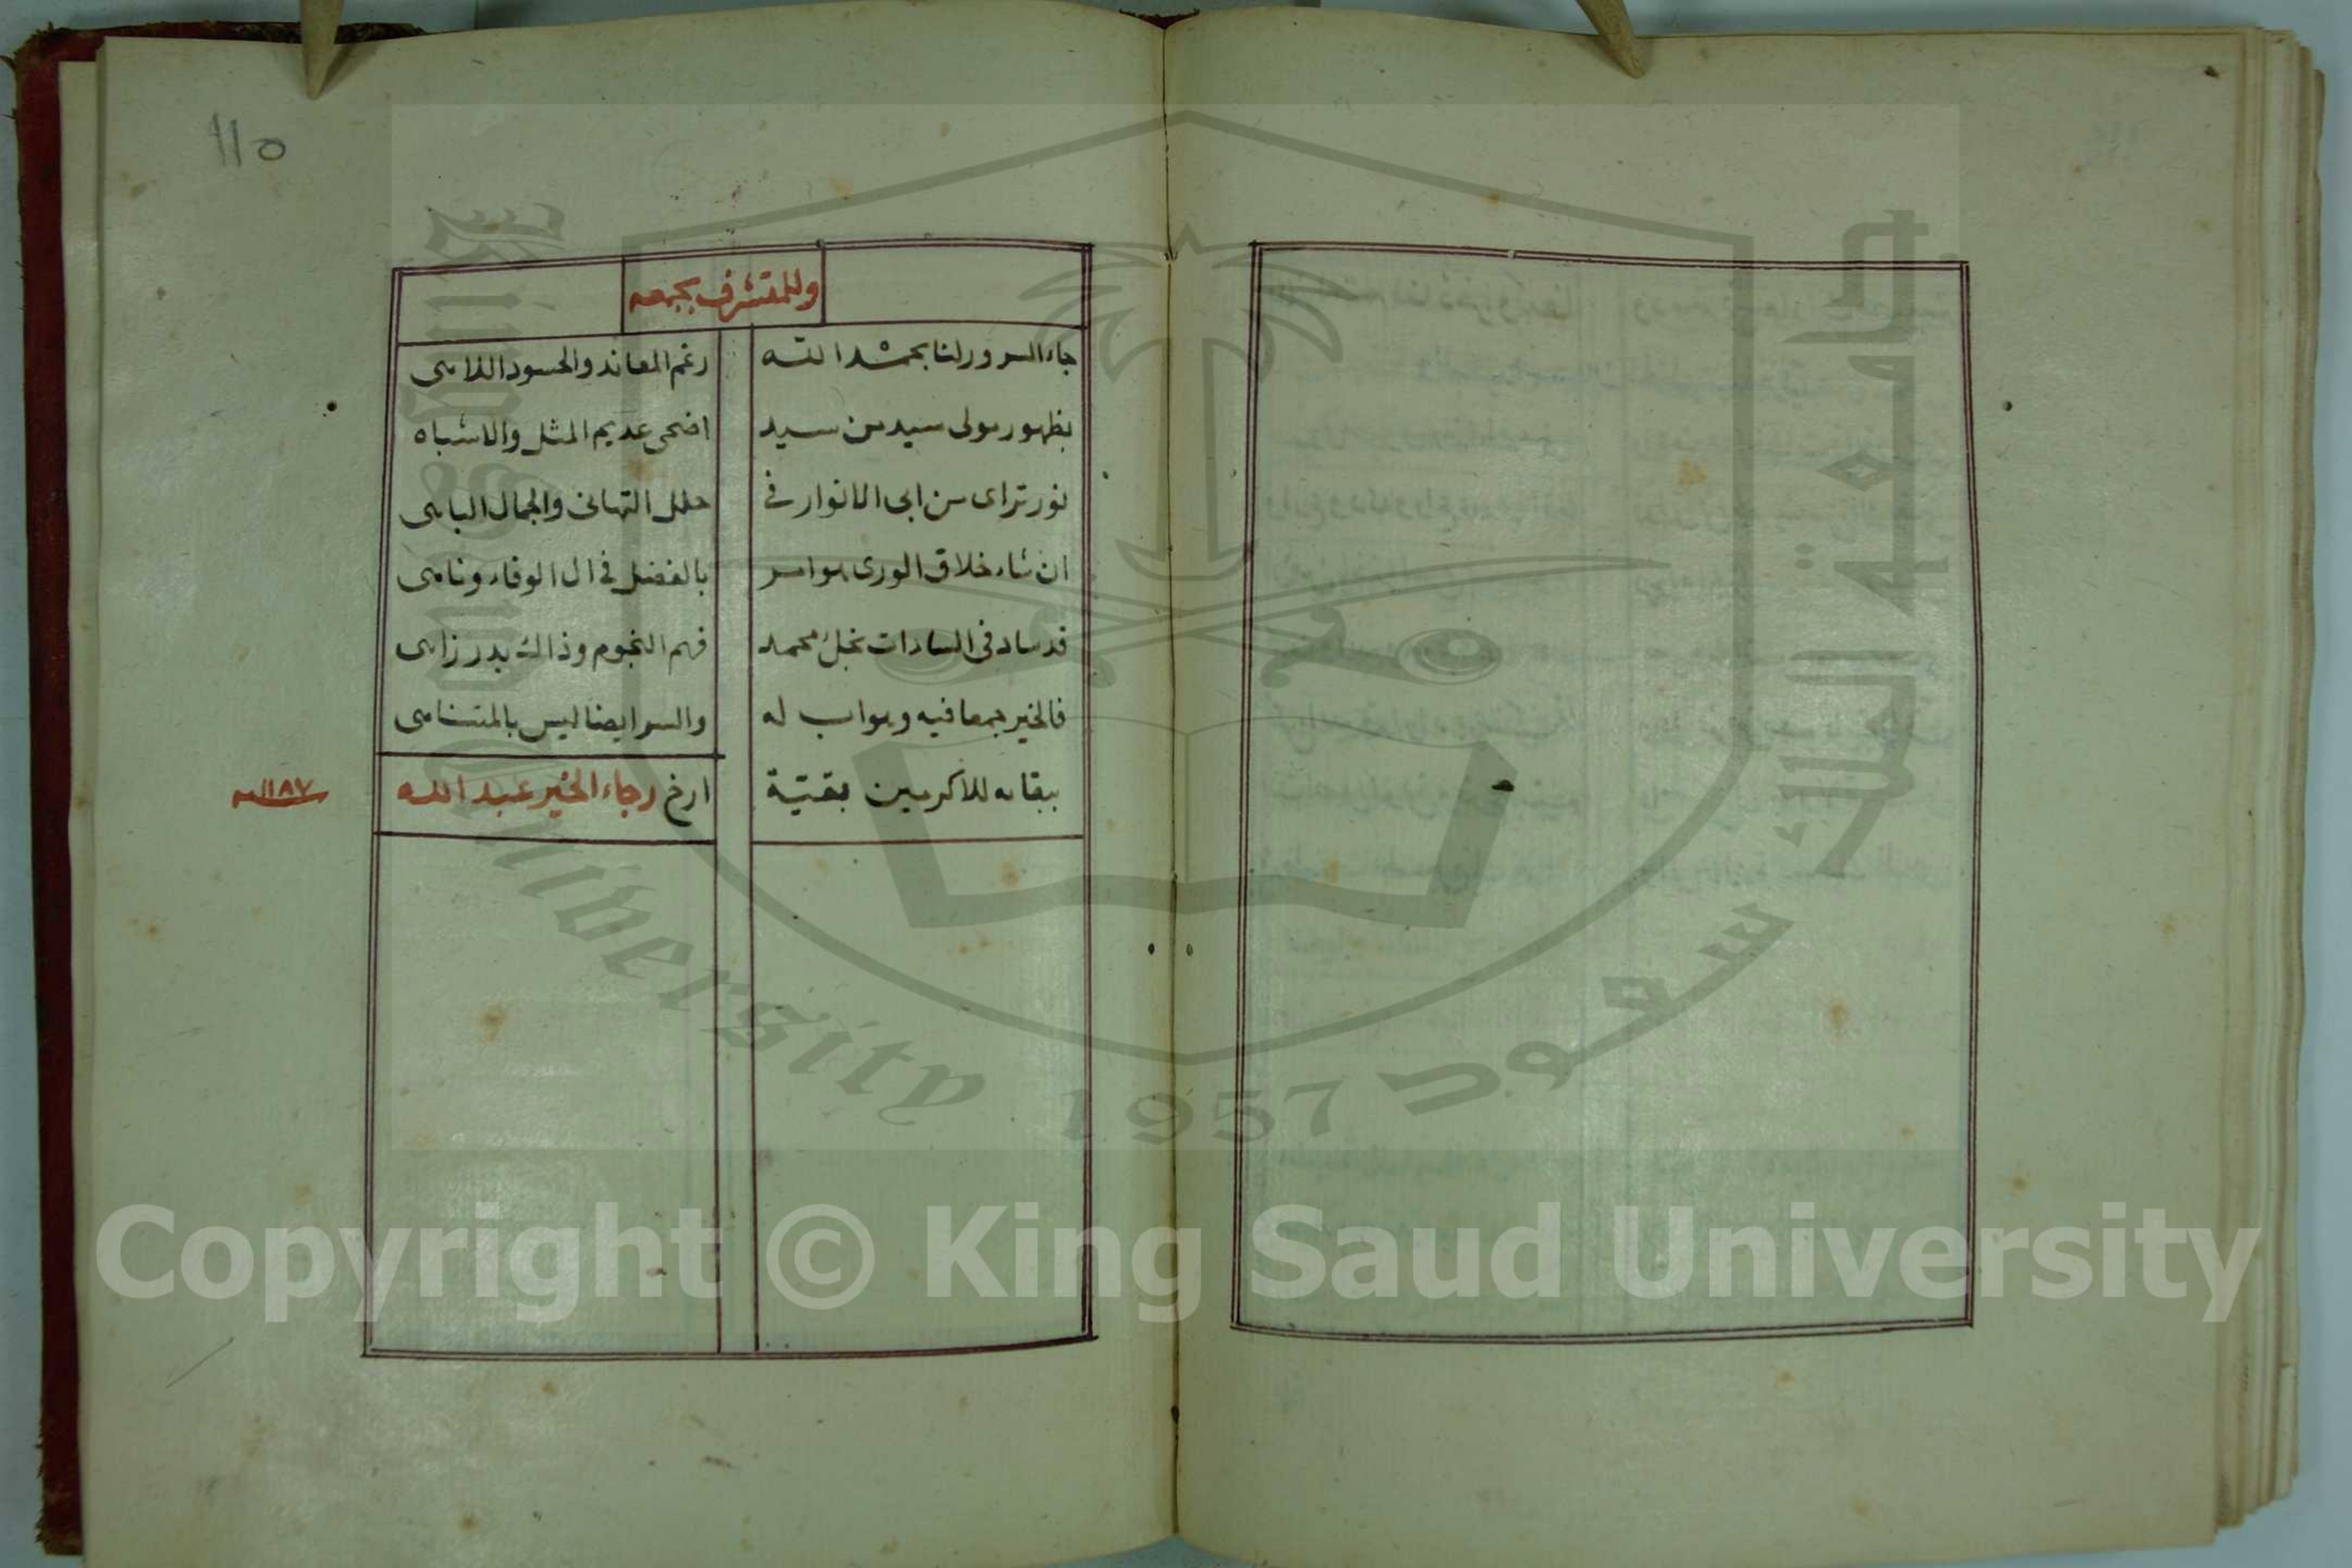 ١١٥
وللمتشرف بجمعه
جاء السرور لنا بحمد الله رغم المعاند والحسود اللاهى
بظهور مولى سيد من سيد اضحى عديم المثل والاشباه
نور تراى من ابى الانوار فى حلل التهانى والجمال الباهى
ان شاء خلاق الورى هو امر بالفضل فى ال الوفاء وناهى
قد ساد فى السادات نجل محمد فهم النجوم وذاك بدر زاهى
فالخير جمعا فيه وهو اب له والسر ايضا ليس بالمتناهى
ببقائه للاكرمين بقية ارخ رجاء الخير عبد الله
١١٨٧ سنه
King Saud University 1957
جامعة الملك سعود
Copyright © King Saud University